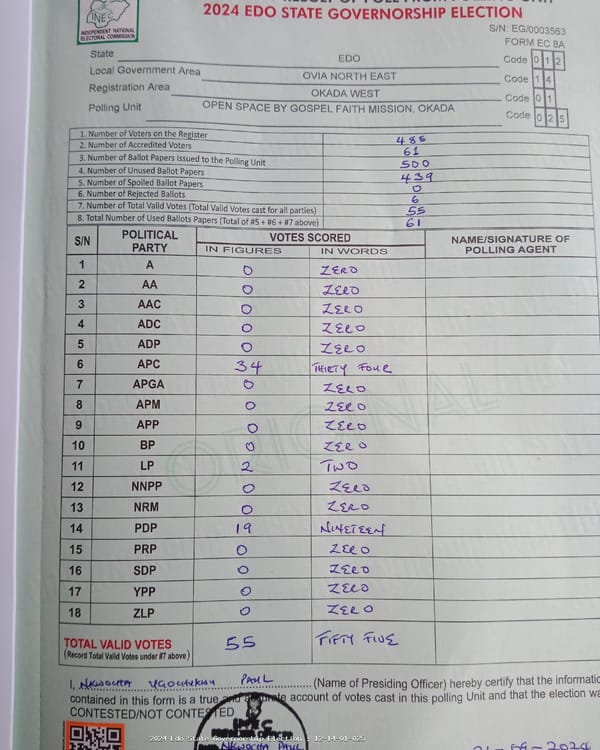 INEC
INDEPENDENT NATIONAL
ELECTORAL COMMISSION
2024 EDO STATE GOVERNORSHIP ELECTION
S/N: EG/0003563
FORM EC 8A
State EDO Code 0 1 2
Local Government Area OVIA NORTH EAST Code 1 4
Registration Area OKADA WEST Code 0 1
Polling Unit OPEN SPACE BY GOSPEL FAITH MISSION, OKADA Code 0 2 5
1. Number of Voters on the Register 485
2. Number of Accredited Voters 61
3. Number of Ballot Papers Issued to the Polling Unit 500
4. Number of Unused Ballot Papers 439
5. Number of Spoiled Ballot Papers 0
6. Number of Rejected Ballots 6
7. Number of Total Valid Votes (Total Valid Votes cast for all parties) 55
8. Total Number of Used Ballots Papers (Total of #5 + #6 + #7 above) 61
S/N POLITICAL PARTY VOTES SCORED NAME/SIGNATURE OF POLLING AGENT
IN FIGURES IN WORDS
1 A 0 ZERO
2 AA 0 ZERO
3 AAC 0 ZERO
4 ADC 0 ZERO
5 ADP 0 ZERO
6 APC 34 THIRTY FOUR
7 APGA 0 ZERO
8 APM 0 ZERO
9 APP 0 ZERO
10 BP 0 ZERO
11 LP 2 TWO
12 NNPP 0 ZERO
13 NRM 0 ZERO
14 PDP 19 NINETEEN
15 PRP 0 ZERO
16 SDP 0 ZERO
17 YPP 0 ZERO
18 ZLP 0 ZERO
ORIGINAL
TOTAL VALID VOTES 55 FIFTY FIVE
(Record Total Valid Votes under #7 above)
I, NKWOCHA UGOCHUKWU PAUL (Name of Presiding Officer) hereby certify that the informatio
contained in this form is a true and accurate account of votes cast in this polling Unit and that the election wa
CONTESTED/NOT CONTESTED
INEC
2024 Edo State Governorship Election - 12-14-01-025
NKWOCHA PAUL